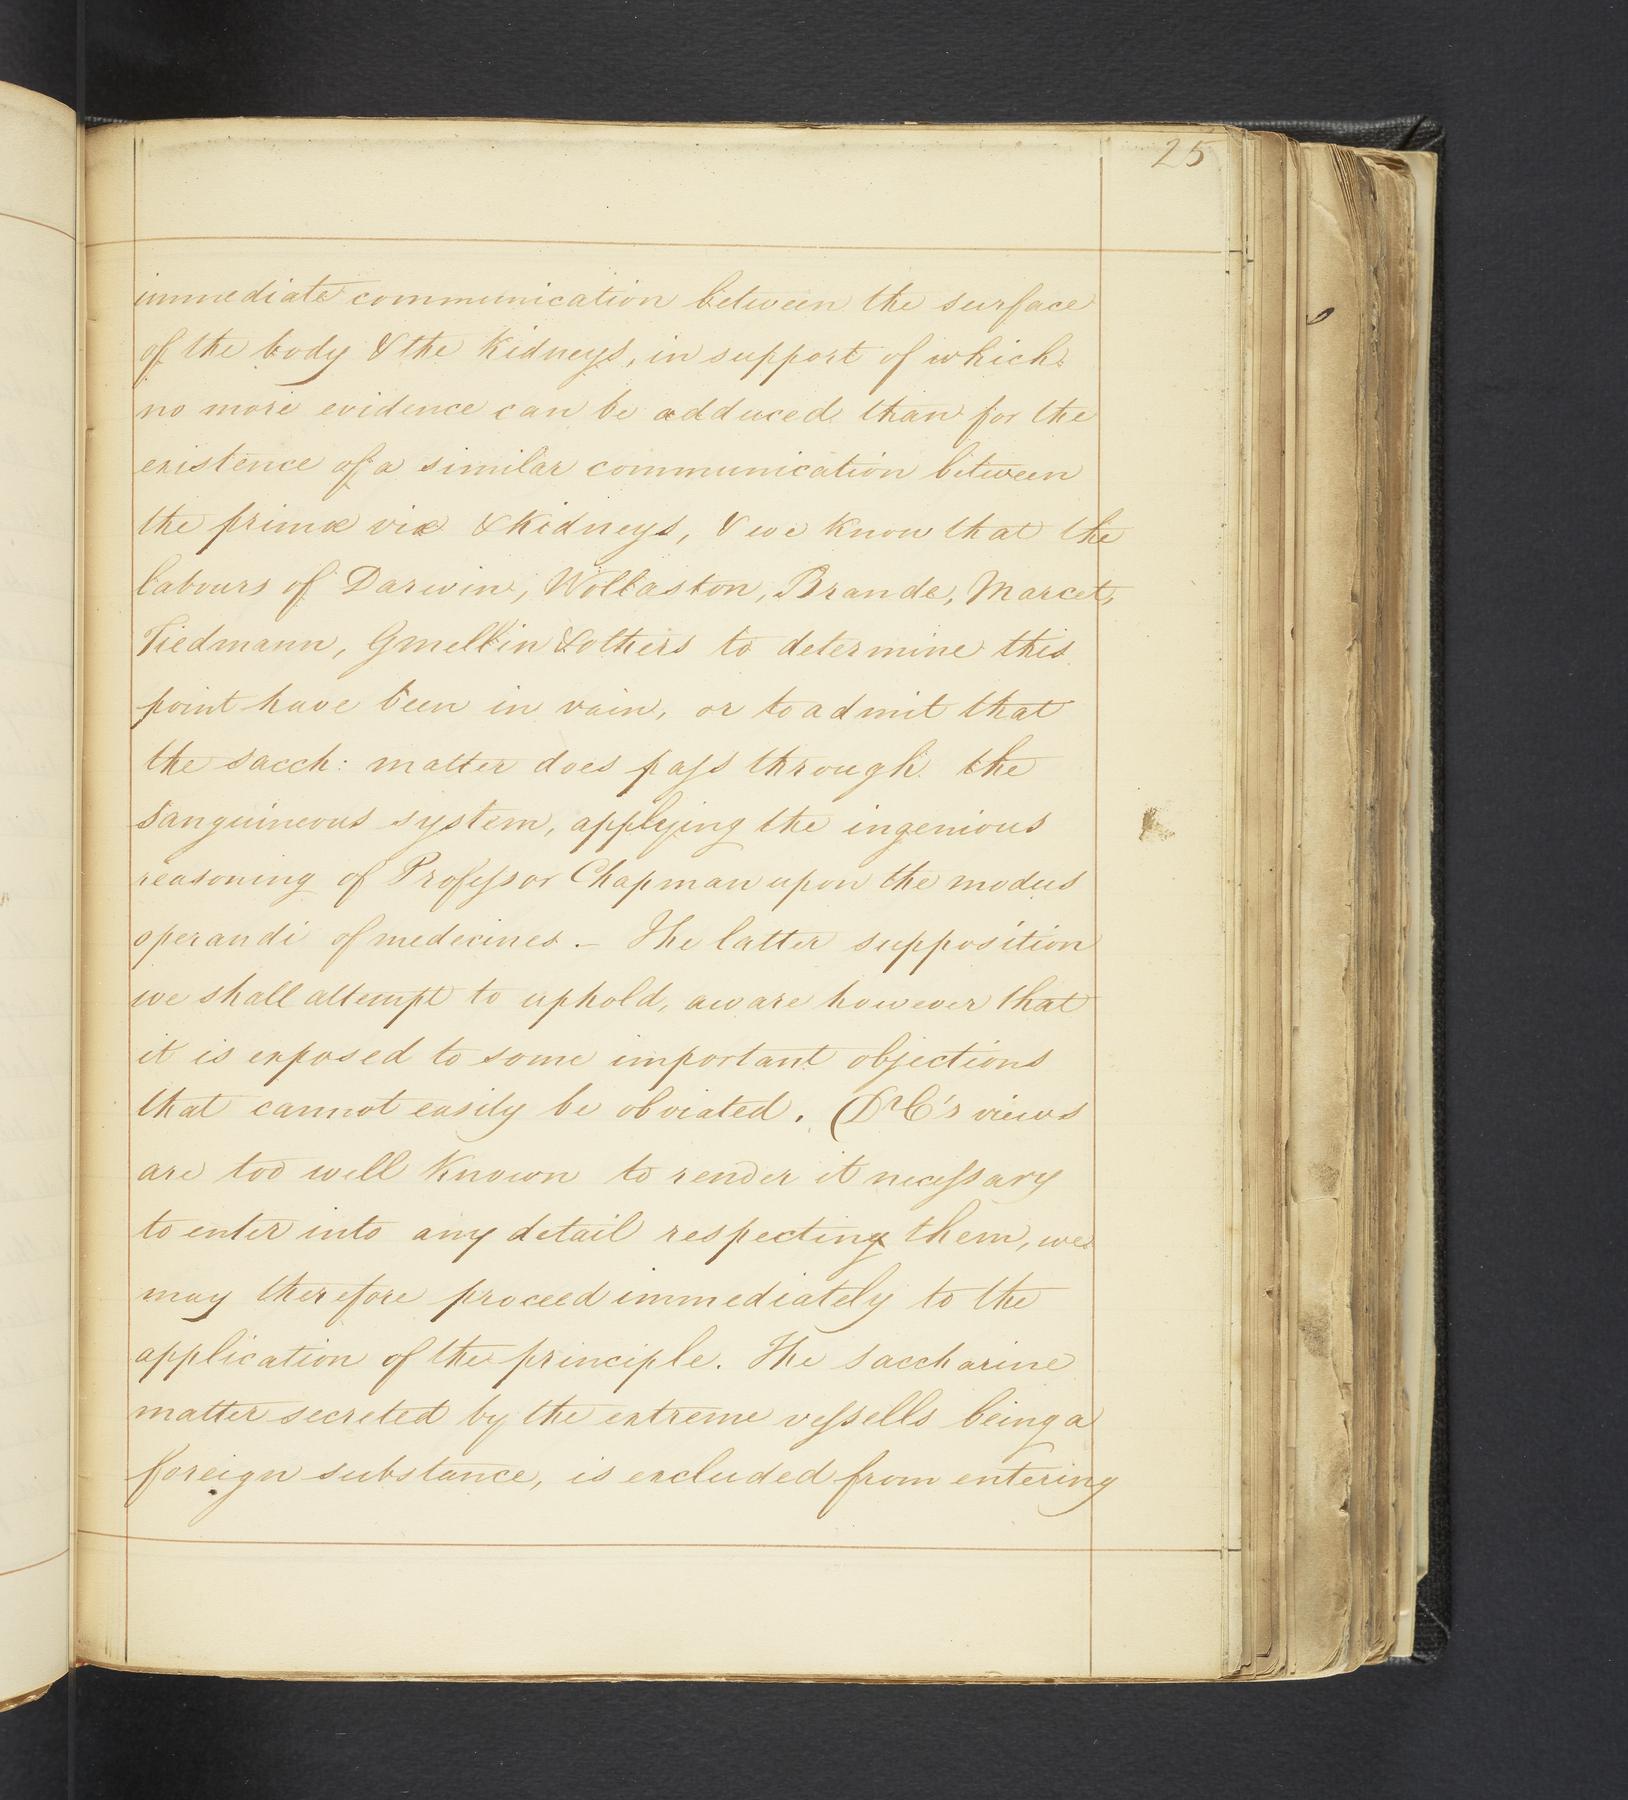 25
immediate communication between the surface
of the body & the Kidneys, in support of which
no more evidence can be adduced than for the
existence of a similar communication between
the primæ viæ & Kidneys, & we know that the
labours of Darwin, Wollaston, Brande, Marcet,
Tiedmann, Gmellin & others to determine this
point have been in vain, or to admit that
the sacch: matter does paſs through the
sanguineous system, applying the ingenious
reasoning of Profeſsor Chapman upon the modus
operandi of medecines. – The latter supposition
we shall attempt to uphold, aware however that
it is exposed to some important objections
that cannot easily be obviated. (Dr C's views
are too well Known to render it neceſsary
to enter into any detail respecting them, we
may therefore proceed immediately to the
application of the principle. The saccharine
matter secreted by the extreme veſsells being a
foreign substance, is excluded from entering